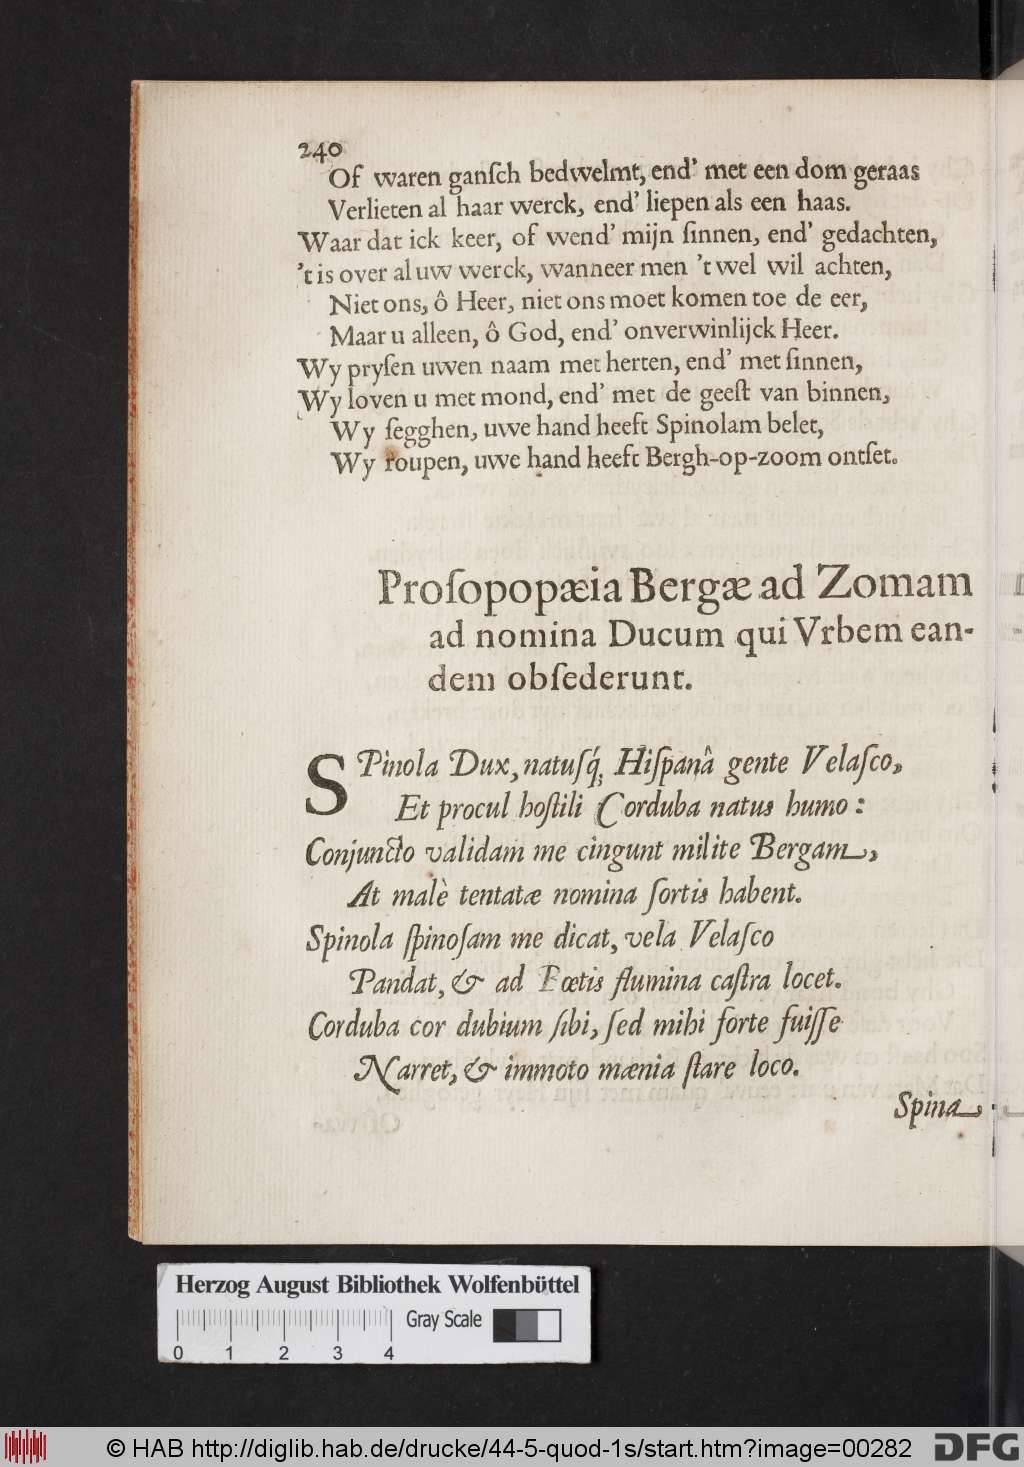 240
Of waren ganſch bedwelmt, end’ met een dom geraas
Verlieten al haar werck, end’ liepen als een haas.
Waar dat ick keer, of wend’ mijn ſinnen, end’ gedachten,
’t is over al uw werck, wanneer men ’t wel wil achten,
Niet ons, ô Heer, niet ons moet komen toe de eer,
Maar u alleen, ô God, end’ onverwinlijck Heer.
Wy pryſen uwen naam met herten, end’ met ſinnen,
Wy loven u met mond, end’ met de geeſt van binnen,
Wy ſegghen, uwe hand heeft Spinolam belet,
Wy roupen, uwe hand heeft Bergh-op-zoom ontſet.
Proſopopæia Bergæ ad Zomam
ad nomina Ducum qui Vrbem ean-
dem obſederunt.
SPinola Dux, natuſq́; Hiſpanâ gente Velaſco,
Et procul hoſtili Corduba natus humo:
Conjuncto validam me cingunt milite Bergam,
At malè tentatæ nomina ſortis habent.
Spinola ſpinoſam me dicat, vela Velaſco
Pandat, & ad Bœtis flumina caſtra locet.
Corduba cor dubium ſibi, ſed mihi forte fuiſſe
Narret, & immoto mænia ſtare loco.
Spina
Herzog August Bibliothek Wolfenbüttel
Gray Scale
0 1 2 3 4
© HAB http://diglib.hab.de/drucke/44-5-quod-1s/start.htm?image=00282
DFG